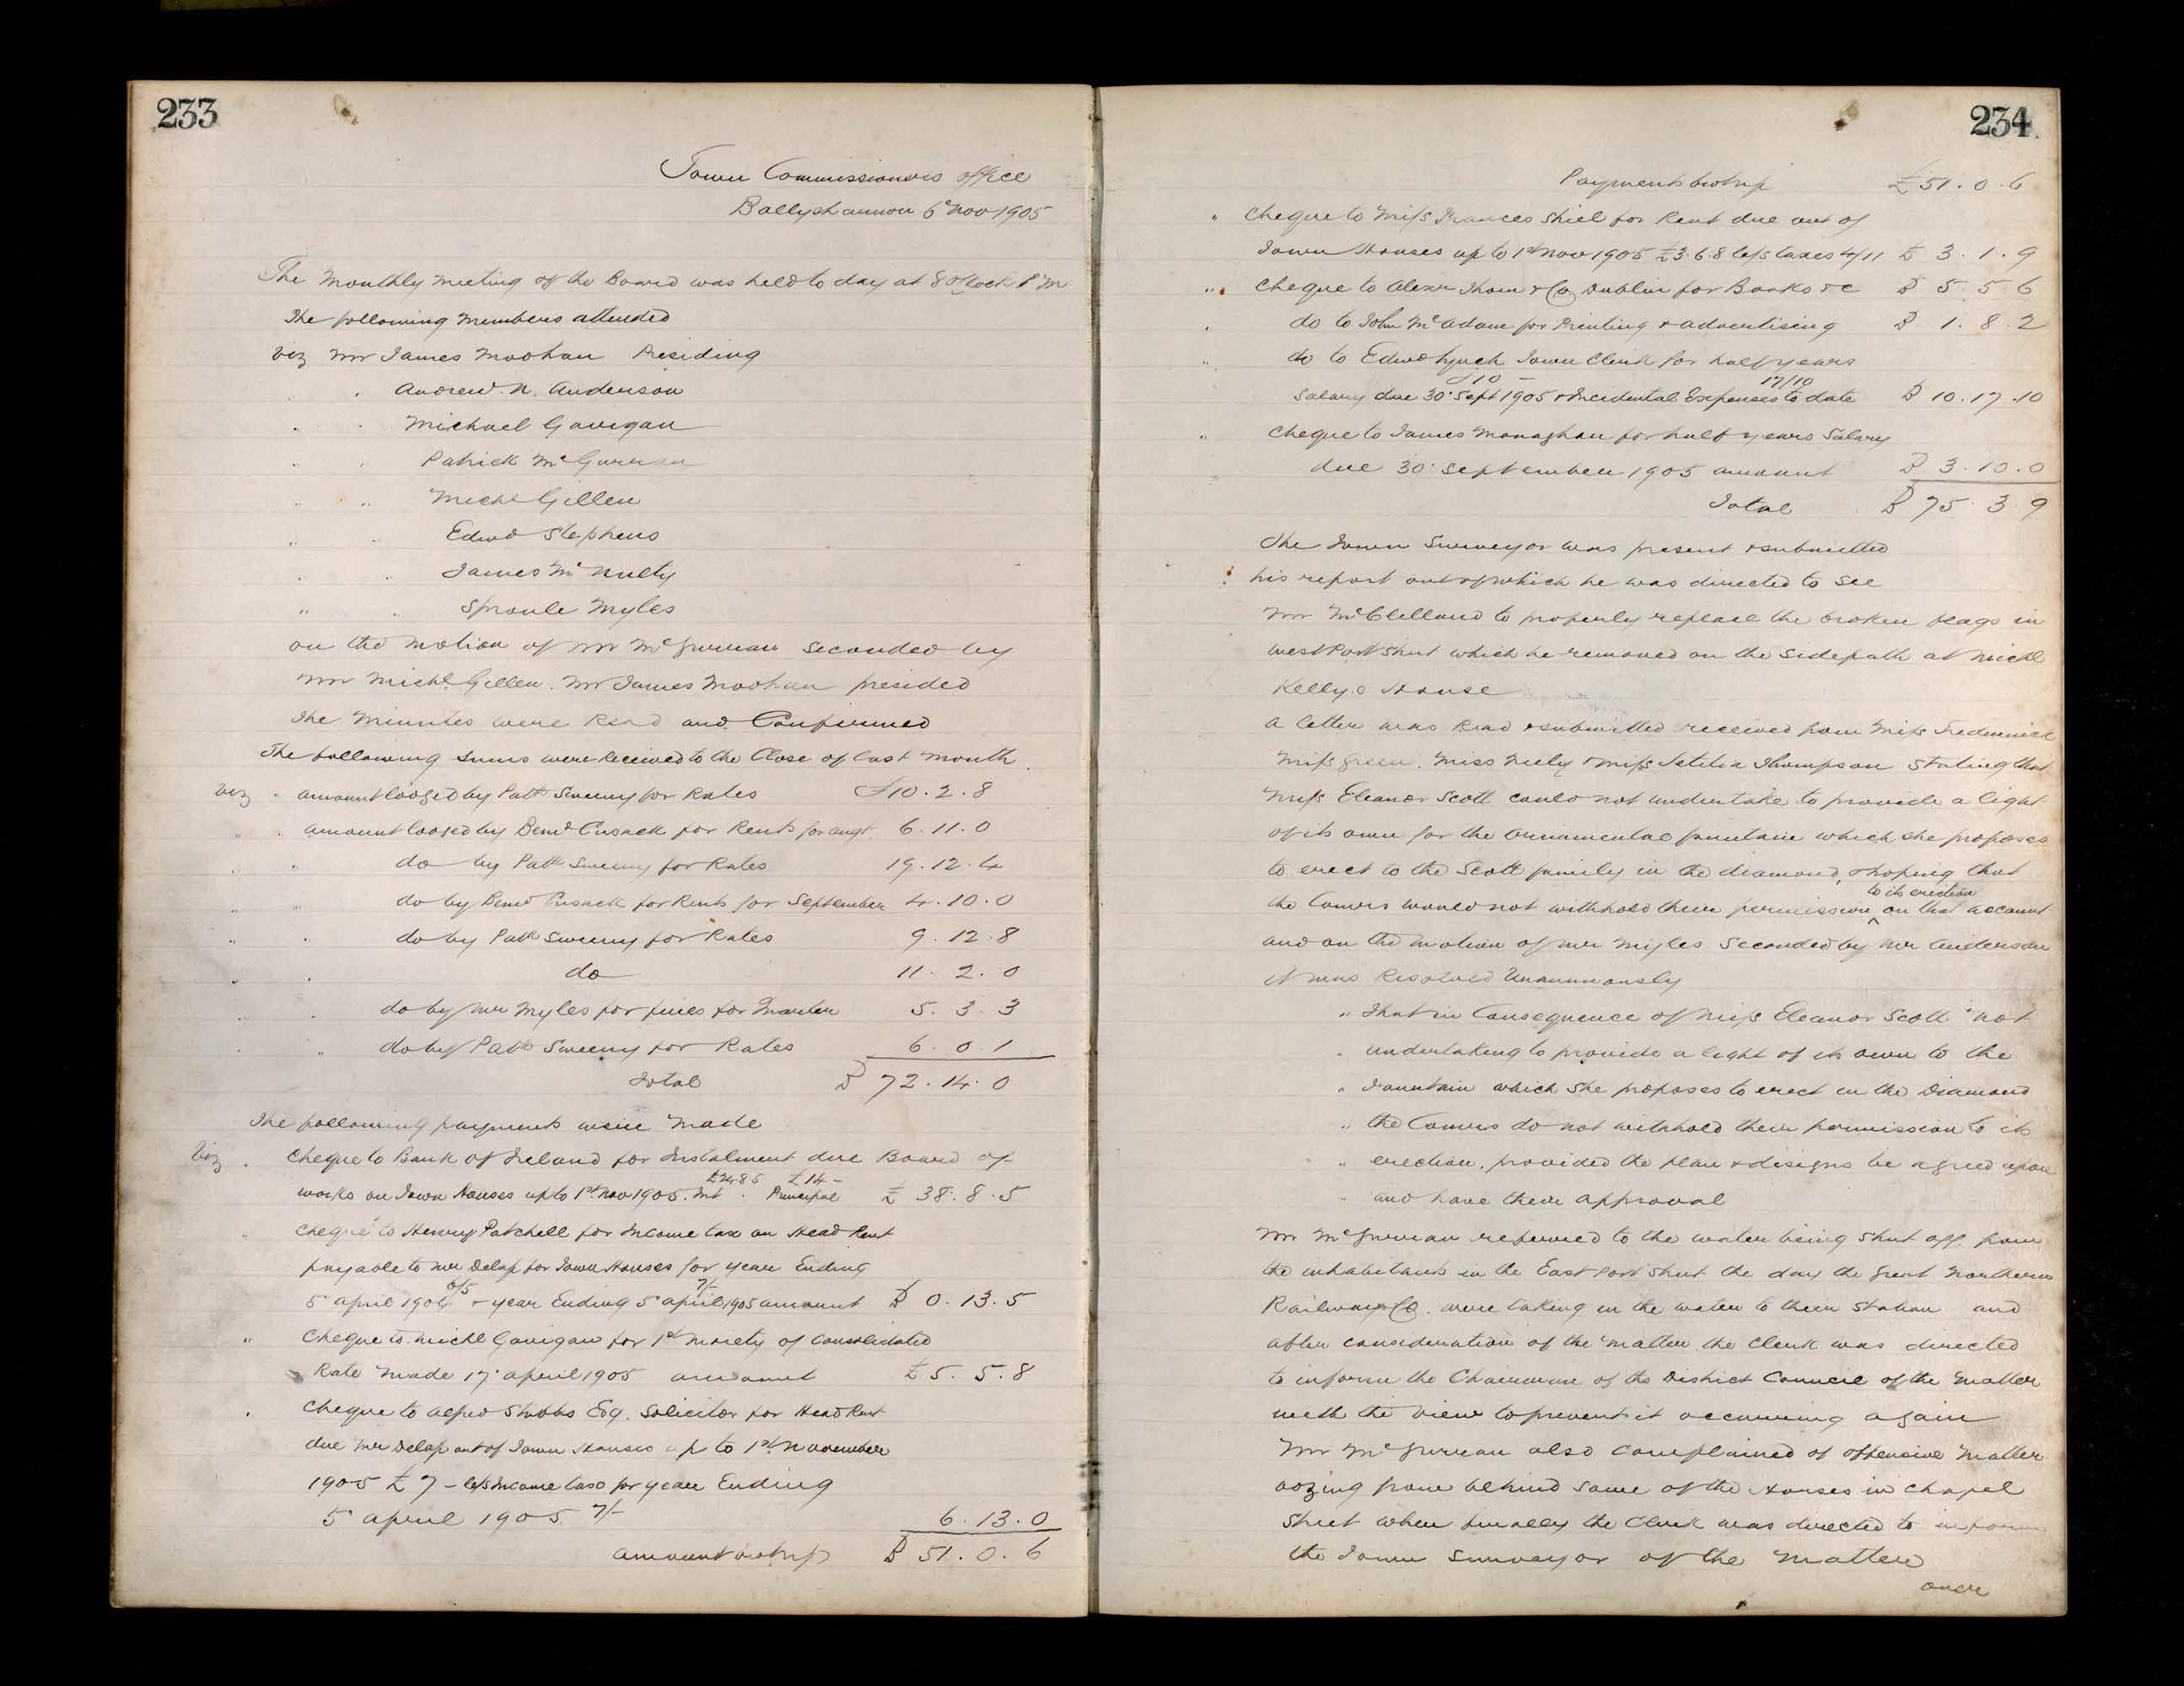 233
Town Commissioners office
Ballyshannon 6th Nov 1905
The Monthly meeting of the Board was held to day at 8 o'Clock P M
The following members attended
viz Mr James Moohan Presiding
" " Andrew N. Anderson
" " Michael Gavigan
" " Patrick McGurran
" " Michl Gillen
" " Edwd Stephens
" " James McNulty
" " Sproule Myles
on the motion of Mr McGurran Seconded by
Mr Michl Gillen. Mr James Moohan presided
The Minutes were Read and Confirmed
The following sums were Received to the Close of last Month
viz " amount lodged by Patk Sweeny for Rates £10.2.8
" " amount lodged by Bernd Cusack for Rents for augt 6.11.0
" " do by Patk Sweeny for Rates 19.12.4
" " do by Bernd Cusack for Rents for September 4.10.0
" " do by Patk Sweeny for Rates 9.12.8
" " do 11.2.0
" " do by Mr Myles for fines for Quarter 5.3.3
" " do by Patk Sweeny for Rates 6.0.1
Total £72.14.0
The following payments were made
Viz " Cheque to Bank of Ireland for Instalment due Board of
works on Town Houses up to 1st Nov 1905. Int £24.8.5 Principal £14 - £38.8.5
" Cheque to Henry Patchell for Income tax on Head Rent
payable to Mr Delap for Town Houses for year Ending
5 april 1904 6/5 & year Ending 5 april 1905 7/- amount £0.13.5
" Cheque to Michl Gavigan for 1st Moiety of Consolidated
Rate Made 17 april 1905 amount £5.5.8
" Cheque to alfred Stubbs Esq. Solicitor for Head Rent
due Mr Delap out of Town Houses up to 1st November
1905 £7 - less Income tax for year Ending
5 april 1905 7/- 6.13.0
amount brot up £51.0.6
234
Payments brot up £51.0.6
" Cheque to Miss Frances Shiel for Rent due out of
Town Houses up to 1st Nov 1905 £3.6.8 less taxes 4/11 £3.1.9
" Cheque to Alexr Thom & Co Dublin for Books &c £5.5.6
" do to John McAdam for Printing & advertising £1.8.2
" do to Edwd Lynch Town Clerk for half years
Salary due 30 Sept 1905 £10 - & Incidental Expenses to date 17/10 £10.17.10
" Cheque to James Monaghan for half years Salary
due 30 September 1905 amount £3.10.0
Total £75.3.9
The Town Surveyor was present & submitted
his report out of which he was directed to see
Mr McClelland to properly replace the broken flags in
West Port Street which he removed on the sidepath at Michl
Kelly's House
A letter was Read & submitted received from Miss Frederick
Miss Green. Miss Neely & Miss Letitia Thompson Stating that
Miss Eleanor Scott could not undertake to provide a light
of its own for the ornamental fountain which she proposes
to erect to the Scott family in the diamond, & hoping that
the Comrs would not withhold their permission to its erection on that account
and on the motion of Mr Myles Seconded by Mr Anderson
it was Resolved Unanimously
" That in Consequence of Miss Eleanor Scott not
" undertaking to provide a light of its own to the
" Fountain which she proposes to erect in the Diamond
" the Comrs do not withhold their permission to its
" erection, provided the plan & designs be agreed upon
" and have their approval
Mr McGurran referred to the water being shut off from
the inhabitants in the East Port Street the day the Great Northern
Railway Co. were taking in the water to their Station and
after consideration of the matter the Clerk was directed
to inform the Chairman of the District Council of the Matter
with the view to prevent it occurring again
Mr McGurran also complained of offensive Matter
oozing from behind some of the Houses in Chapel
Street when finally the Clerk was directed to inform
the Town Surveyor of the Matter
over